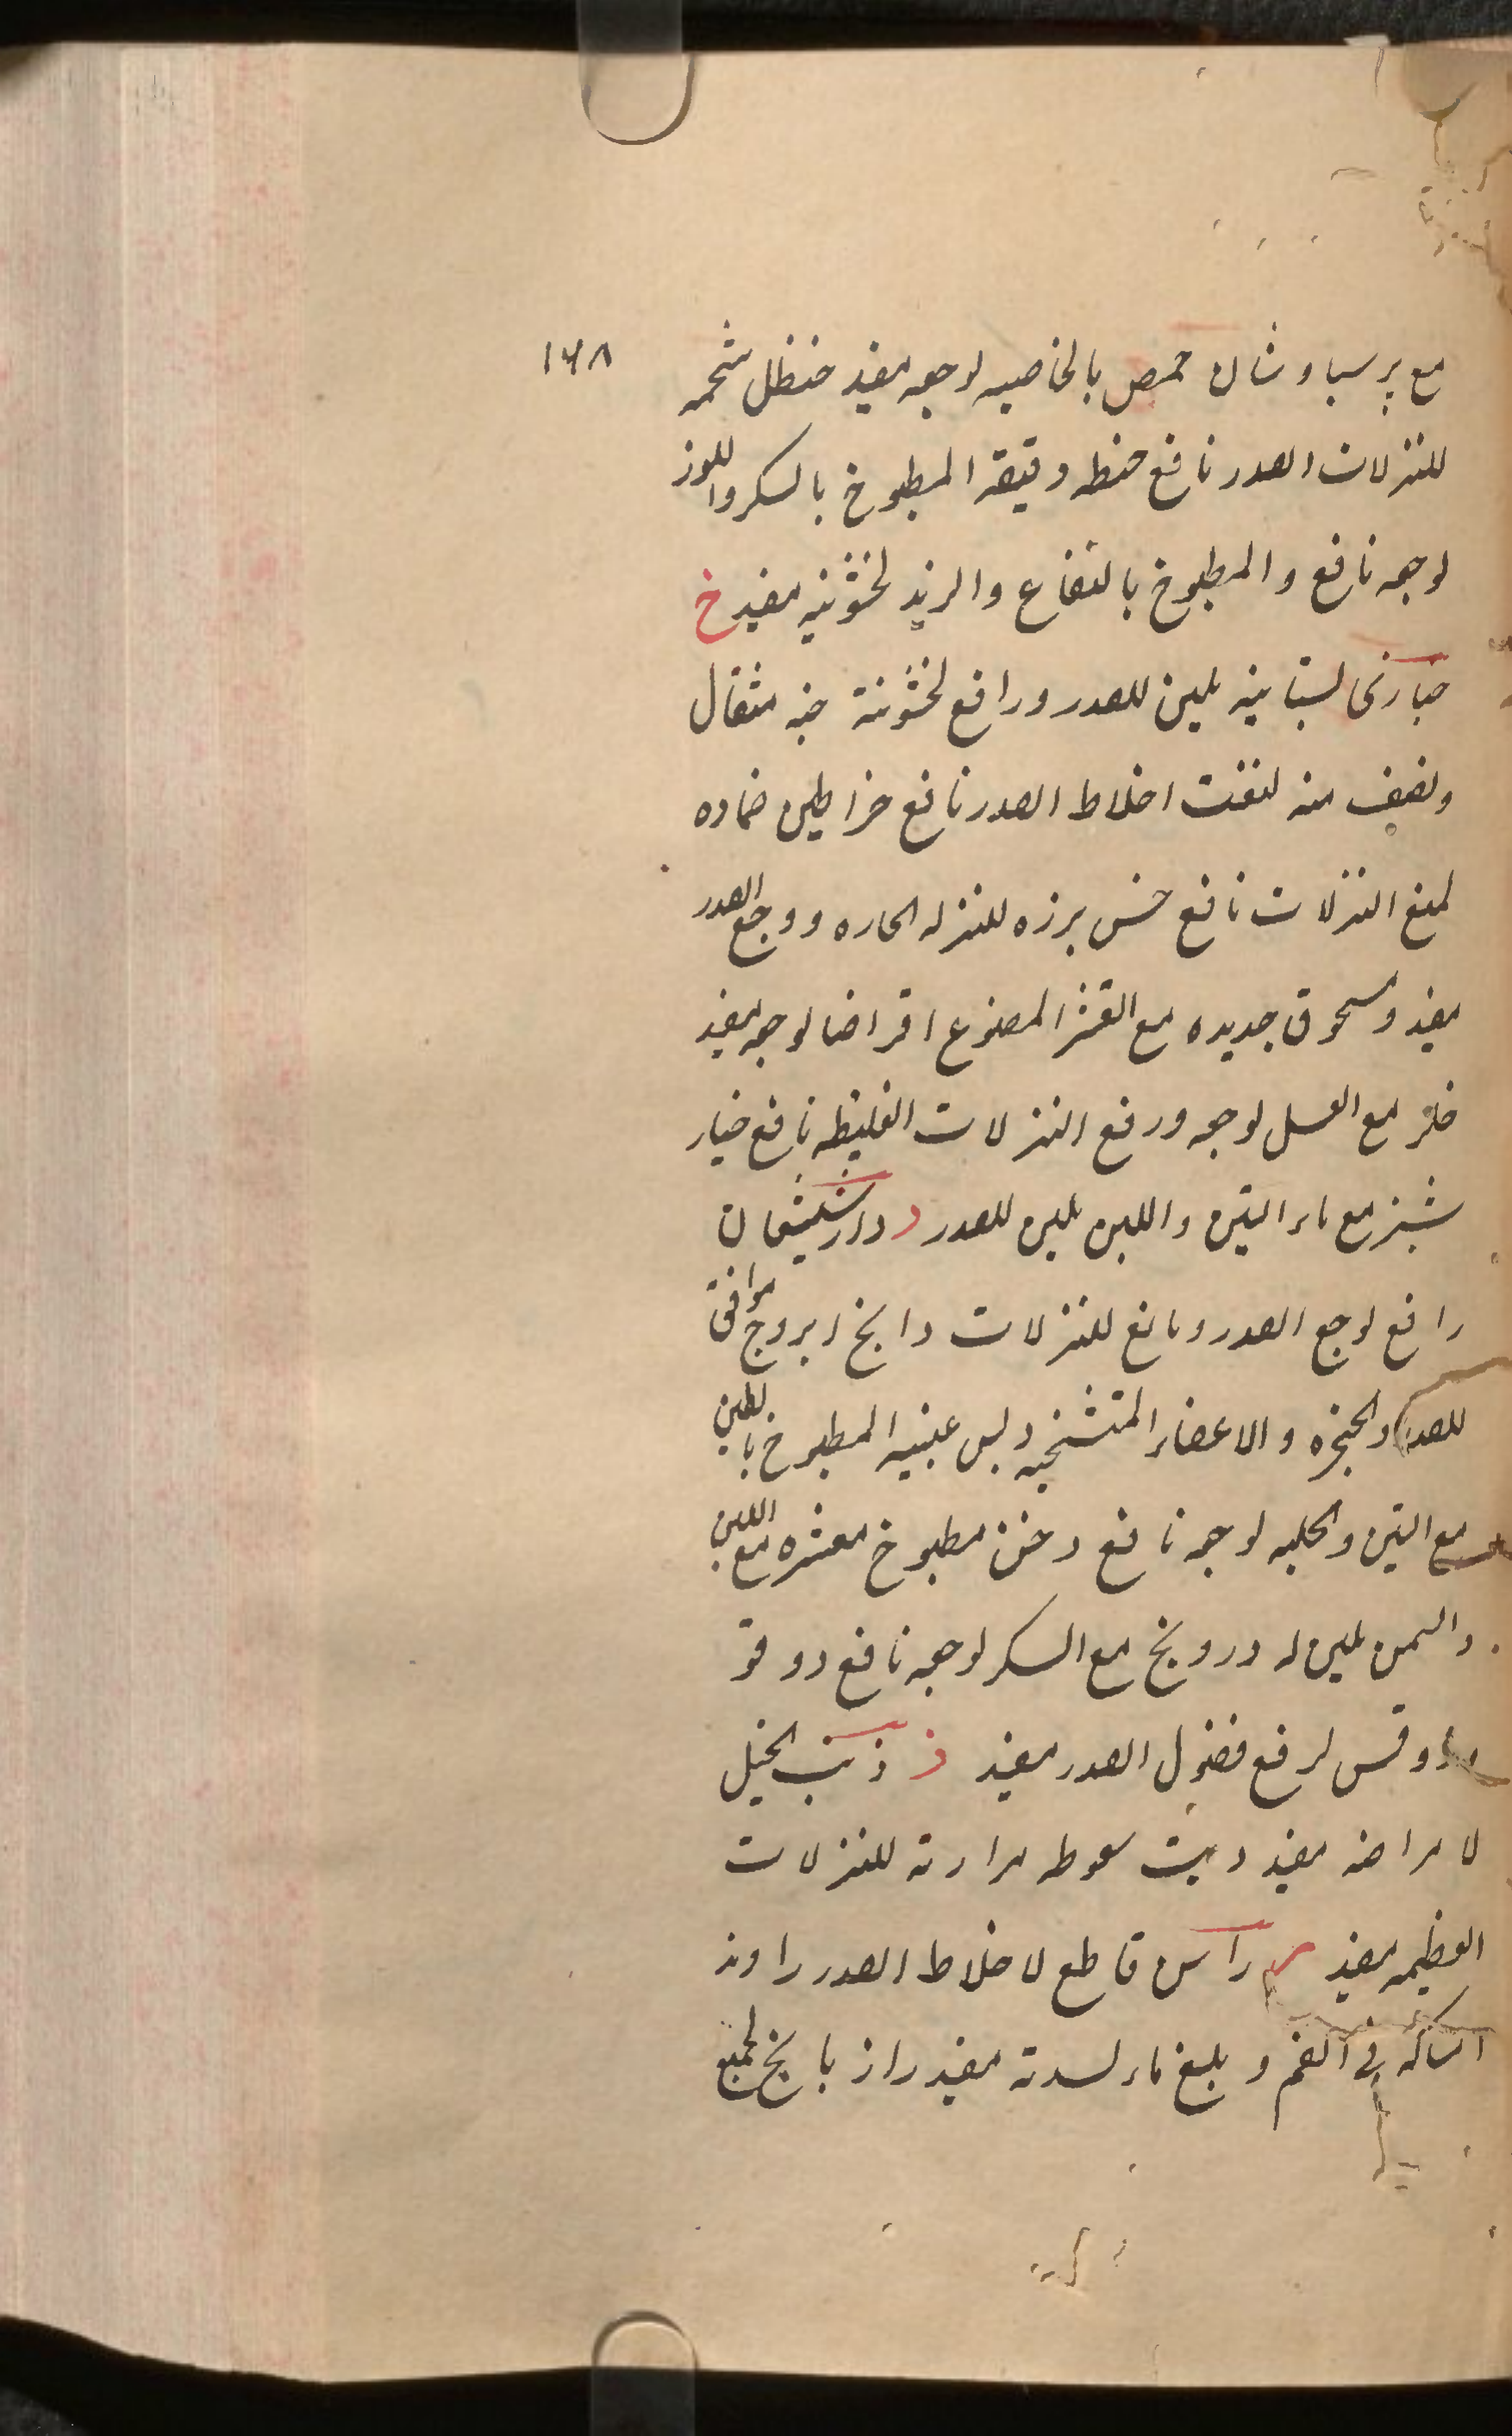 ١٦٨
مع پرسیاوشان حمص بالخاصیه لوجعه مفید حنظل شحمه
للنزلات الصدر نافع حنطه دقیقه المطبوخ بالسکر واللوز
لوجعه نافع والمطبوخ بالنعناع والزبد لخشونته مفید خ
خبازی بستانیه ملین للصدر ورافع لخشونته خبه مثقال
ونصف منه لنفث اخلاط الصدر نافع خراطین ضماده
لمنع النزلات نافع خس بزره للنزله الحاره ووجع الصدر
مفید ومسحوق جدیده مع القشر المصنوع اقراضا لوجعه مفید
خلر مع العسل لوجعه ورفع النزلات الغلیظه نافع خیار
شنبر مع ماء التین واللبن ملین للصدر د دارشیشعان
رافع لوجع الصدر ومانع للنزلات دابخ ابروج موافق
للصدر والحنجره والاعضاء المتشنجه دبس عنبیه المطبوخ بالطین
مع التین والحلبه لوجعه نافع دخن مطبوخ مقشره مع اللبن
والسمن ملین له درونج مع السکر لوجعه نافع دوقو
دوقس لرفع فضول الصدر مفید ذ ذنب الخیل
لامراضه مفید دیت سعوطه مرارته للنزلات
العظیمه مفید ر راسن قاطع لاخلاط الصدر راوند
امساکه فی الفم و بلع ماء لسدته مفید رازیانج لجمیع